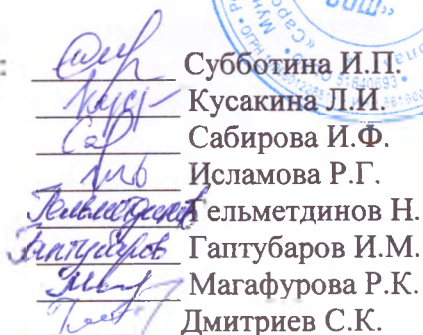 Субботина И.П.
Кусакина Л.И.
Сабирова И.Ф.
Исламова Р.Г.
Гельметдинов Гельметдинов Н.
Гаптубаров Гаптубаров И.М.
Магафурова Р.К.
Дмитриев С.К.